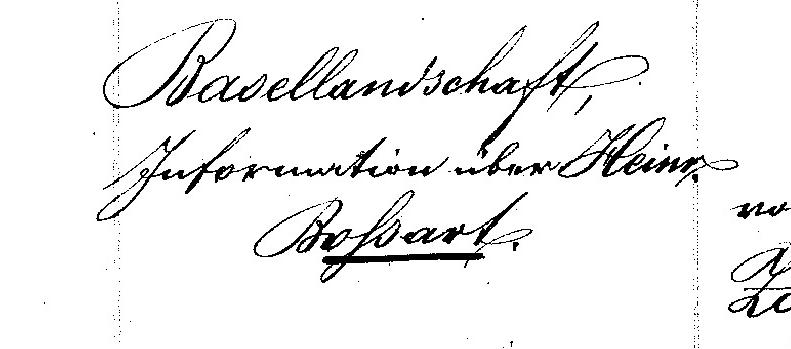 Basellandschaft,
Information über Heinr.
Boßart.